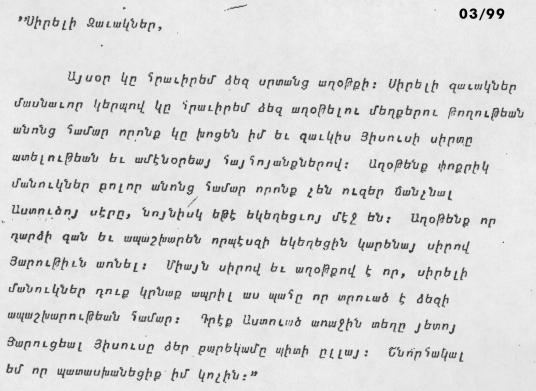 03/99
”Սիրելի Զաւակներ,
Այսօր կը հրաւիրեմ ձեզ սրտանց աղօթքի: Սիրելի զաւակներ
մասնաւոր կերպով կը հրաւիրեմ ձեզ աղօթելու մեղքերու թողութեան
անոնց համար որոնք կը խոցեն իմ եւ զաւկիս Յիսուսի սիրտը
ատելութեան եւ ամէնօրեայ հայհոյանքներով: Աղօթենք փոքրիկ
մանուկներ բոլոր անոնց համար որոնք չեն ուզեր ճանչնալ
Աստուծոյ սէրը, նոյնիսկ եթէ եկեղեցւոյ մէջ են: Աղօթենք որ
դարձի գան եւ ապաշխարեն որպէսզի եկեղեցին կարենայ սիրով
Յարութիւն առնել: Միայն սիրով եւ աղօթքով է որ, սիրելի
մանուկներ դուք կրնաք ապրիլ աս պահը որ տրուած է ձեզի
ապաշխարութեան համար: Դրէք Աստուած առաջին տեղը յետոյ
Յարուցեալ Յիսուսը ձեր բարեկամը պիտի ըլլայ: Շնորհակալ
եմ որ պատասխանեցիք իմ կոչին:”